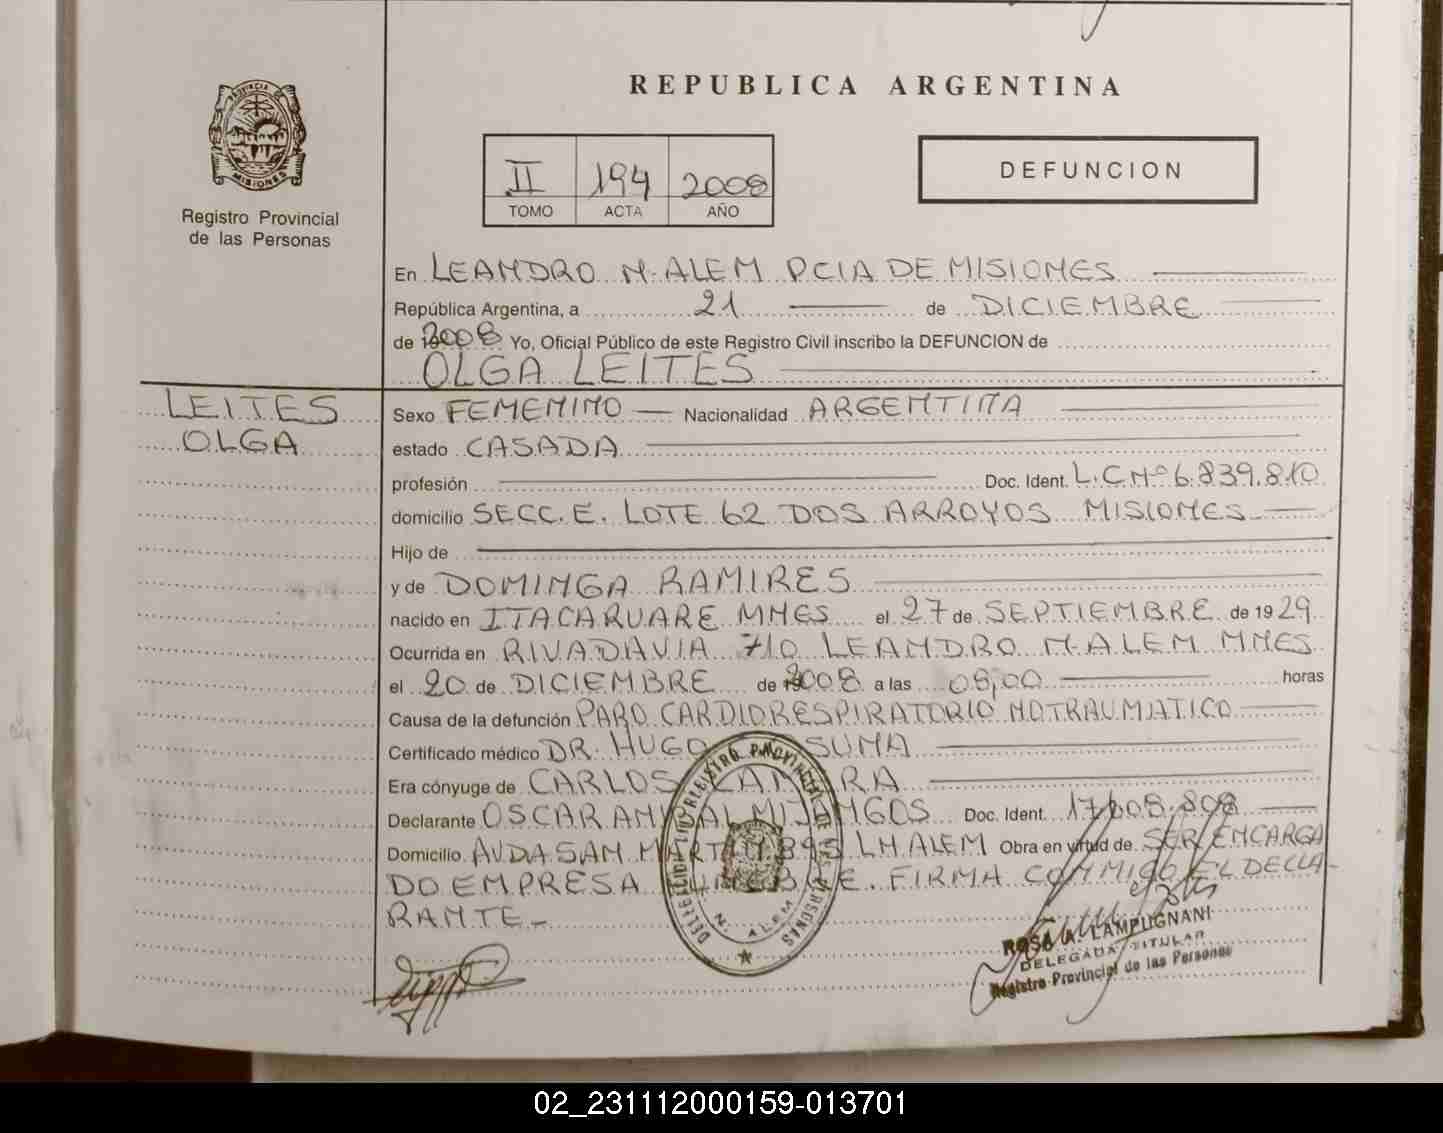 REPUBLICA ARGENTINA
PROVINCIA DE
MISIONES
Registro Provincial
de las Personas
II 194 2008
TOMO ACTA AÑO
DEFUNCION
En LEANDRO N. ALEM PCIA DE MISIONES
República Argentina, a 21 de DICIEMBRE
de 2008 Yo, Oficial Público de este Registro Civil inscribo la DEFUNCION de
OLGA LEITES
LEITES
OLGA
Sexo FEMENINO Nacionalidad ARGENTINA
estado CASADA
profesión Doc. Ident. L.C.Nº 6.839.810
domicilio SECC. E. LOTE 62 DOS ARROYOS MISIONES
Hijo de
y de DOMINGA RAMIRES
nacido en ITACARUARE MNES el 27 de SEPTIEMBRE de 1929
Ocurrida en RIVADAVIA 710 LEANDRO N. ALEM MNES
el 20 de DICIEMBRE de 2008 a las 08,00 horas
Causa de la defunción PARO CARDIORESPIRATORIO NO TRAUMATICO
Certificado médico DR. HUGO SUMA
Era cónyuge de CARLOS
Declarante OSCAR Doc. Ident. 17.608.808
Domicilio AVDA SAN MARTIN 895 L.N.ALEM Obra en virtud de SER ENCARGA
DO EMPRESA FUNEBRE. FIRMA CONMIGO EL DECLA-
RANTE-
REGISTRO PROVINCIAL DE LAS PERSONAS
N. ALEM
ROSA A. LAMPUGNANI
DELEGADA TITULAR
Registro Provincial de las Personas
02_231112000159-013701